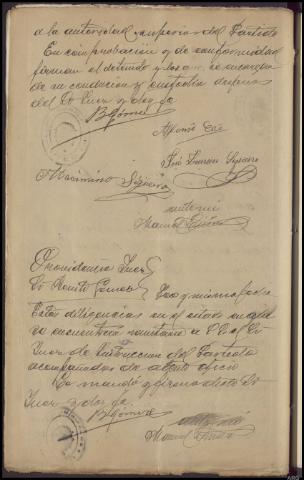 a la autoridad superior del Partido
En comprobación y de conformidad
firman el detenido y los que se encargan
de su conducción y custodia despues
del Sr Juez y doy fe
B Gómez
Alfonso
José
Maximino
ante mi
Manuel
Providencia Juez
Sr Benito Gomez
Loo y misma fecha
Estas diligencias en el estado en que
se encuentra remitanse a S.Sª el Sr
Juez de Instruccion del Partido
acompañadas de atento oficio
Lo mando y firma dicho Sr
Juez y doy fe.
B Gómez
ante mi
Manuel